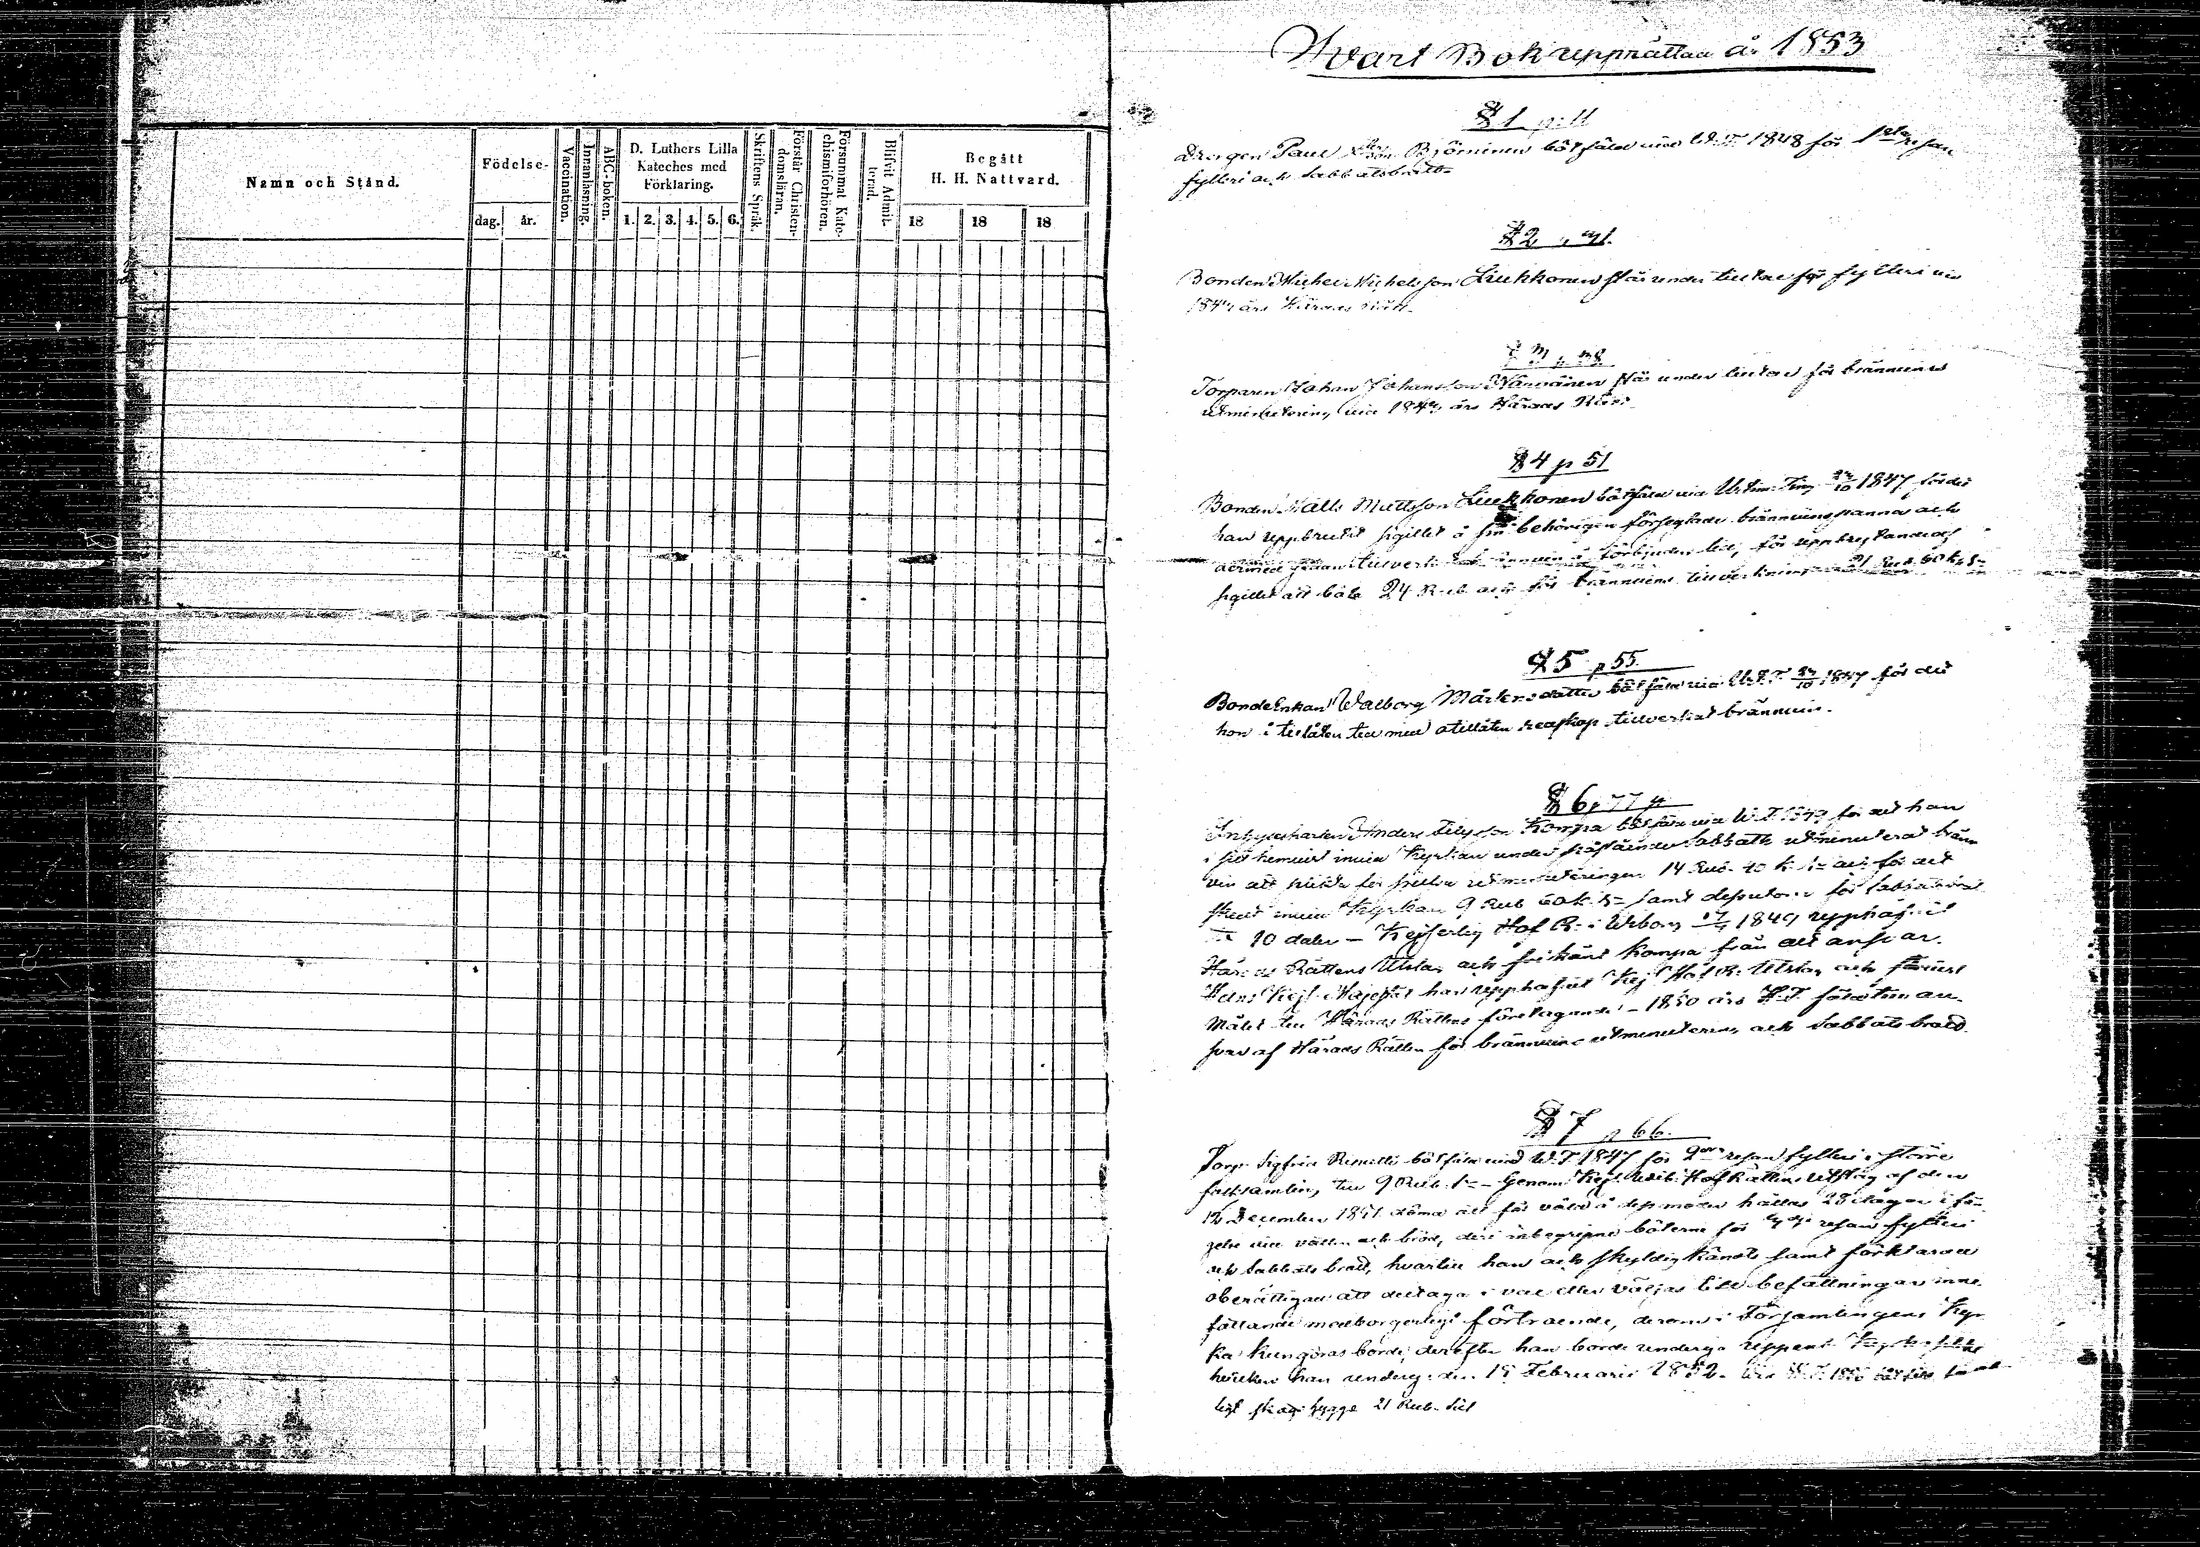 Namn och Stånd.
Födelse-
dag. år.
Vaccination.
Innanläsning.
ABC-boken.
D. Luthers Lilla
Kateches med
Förklaring.
1. 2. 3. 4. 5. 6.
Skriftens Språk.
Förstår Christen-
domsläran.
Försummat Kate-
chismiförhören.
Blifvit Admit-
terad.
Begått
H. H. Nattvard.
18 18 18
Svart Bok upprättad år 1853
§ 1 p. 11
Drengen Paul Björninen bötfäld vid W. T. 1848 för 1sta resan
fylleri och Sabbatsbrott
§ 2
Bonden Michel Michelsson Liukkonen står under tilltal för fylleri vid
års Härads Rätt
§ 3 p. 38
Torparen Johan Johansson står under tilltal för brännvins
utminutering vid års Härads Rätt
§ 4 p 51
Bonden Matts Mattsson Liukkonen bötfäld vid Urtima Ting 27/10 1847 för det
han uppbrutit sigillet å sin behörigen förseglade brännvinspanna och
dermed tillverkat brännvin å förbjuden tid, för uppbrytandet af
sigillet att böta 24 Rub. och för brännvins tillverkning 21 Rub. 60 k. S.
§ 5 p 55.
Bonde Enkan Walborg Mårtensdotter bötfäld vid U. T. 27/10 1847 för det
hon å tillåten tid med otillåten redskap tillverkat brännvin.
§ 6 p 77
Anders Kompa bötfäld vid W. T. för det han
i sitt hemvist invid Kyrkan under påstående Sabbath utminuterat bränn
vin att plikta för sjelfva utminuteringen 14 Rub. 40 k. och för det
skedt invid Kyrkan 9 Rub 60 k. S. samt för Sabbatsbrott
10 daler – Kejserlig Hof R. i Wiborg 1849 upphäfvit
Härads Rättens Utslag och frikändt Kompa från allt ansvar.
Hans Kejs. Majestät har upphäfvit Kejs. Hof R. Utslag och
Målet till Härads Rättens företagande – 1850 års H. T. fäld till an-
svar af Härads Rätten för brännvins utminutering och Sabbats brott.
§ 7 p 66.
Torp. Sigfrid bötfäld vid W. T 1847 för 2dra resan fylleri i större
folksamling till 9 Rub. – Genom Kejs. Wib. Hof Rättens Utslag af den
December 1851 dömd att för våld å dess moder hållas 28 dagar i fän
gelse vid vatten och bröd, deri inbegripne böterne för resan fylleri
och Sabbats brott, hvartill han och skyldig kändts samt förklarad
oberättigad att deltaga i val eller väljas till befattningar inne
fattande medborgerligt förtroende, derom i Församlingens Kyr
ka kungöras borde, derefter han borde undergå uppenb. Kyrkoplikt
hvilken han undergick den 15 Februarii 1852.
skogs hygge 21 Rub. Silf